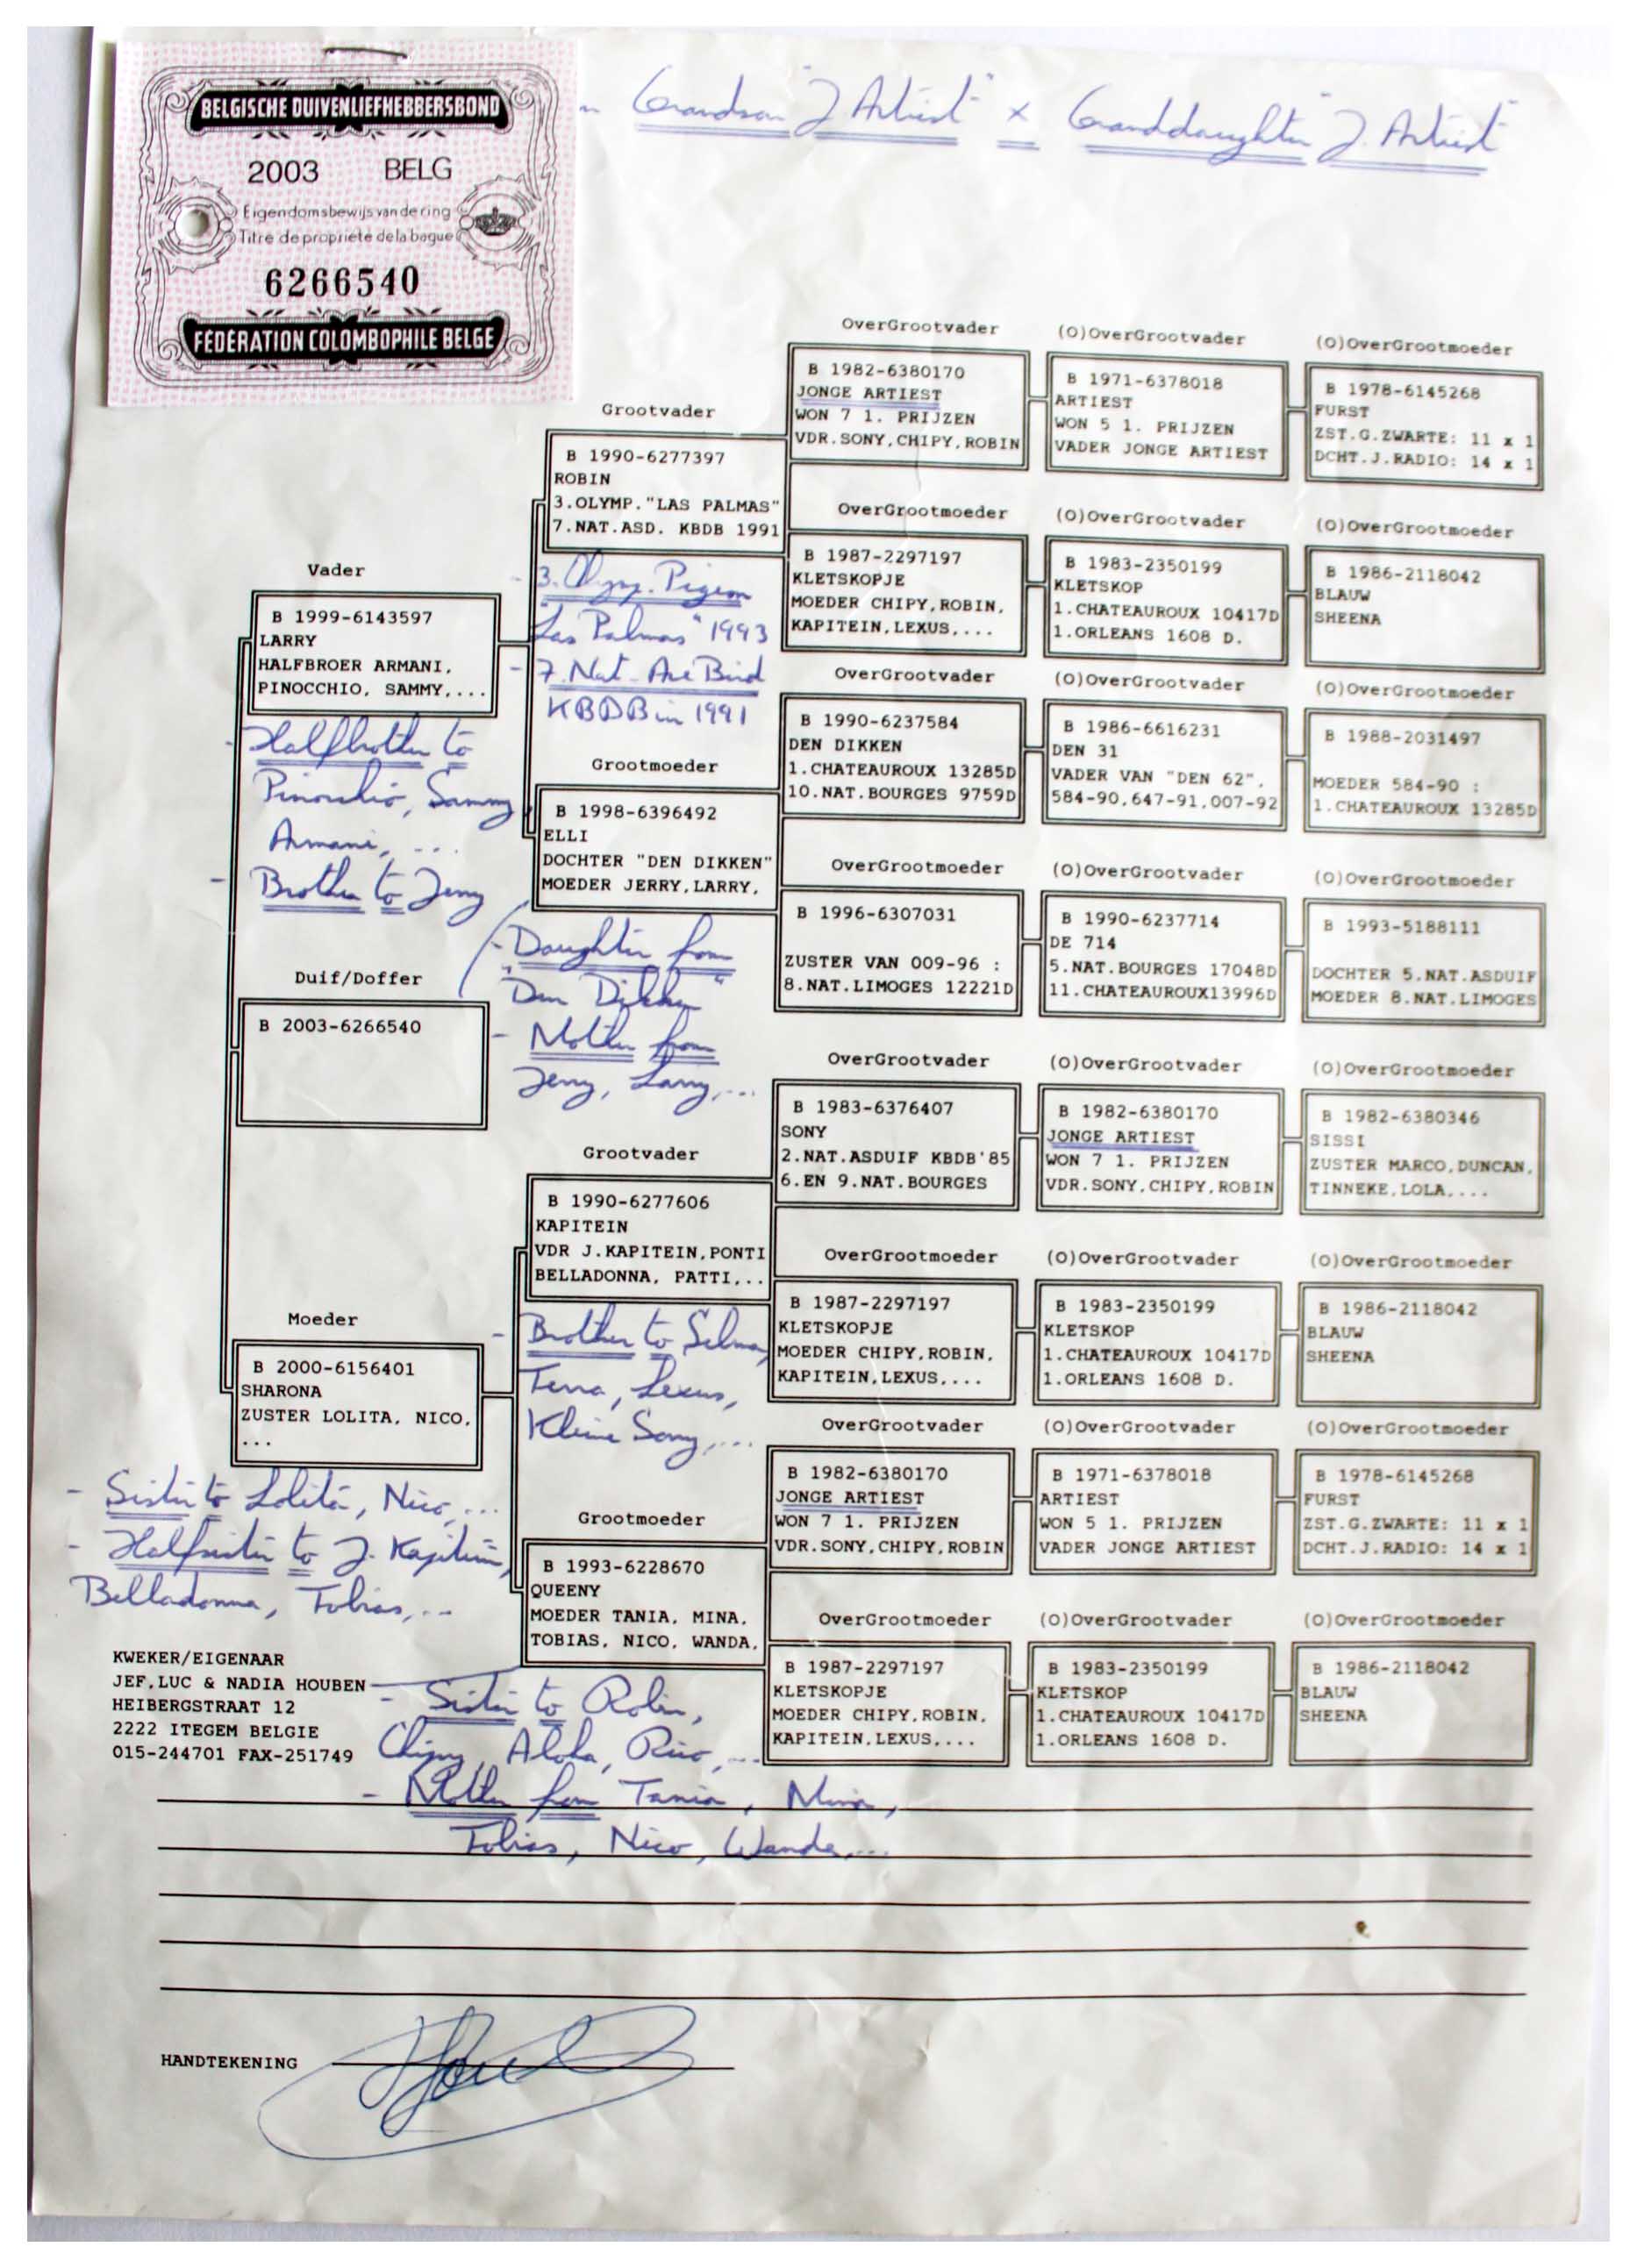 BELGISCHE DUIVENLIEFHEBBERSBOND
2003 BELG
Eigendomsbewijs van de ring
Titre de propriete de la bague
6266540
FEDERATION COLOMBOPHILE BELGE
Grandson "J. Artiest" x Granddaughter "J. Artiest"
Vader
B 1999-6143597
LARRY
HALFBROER ARMANI,
PINOCCHIO, SAMMY,...
- Halfbrother to
Pinocchio, Sammy
Armani, ...
- Brother to Jerry
Duif/Doffer
B 2003-6266540
Moeder
B 2000-6156401
SHARONA
ZUSTER LOLITA, NICO,
...
- Sister to Lolita, Nico,...
- Halfsister to J. Kapitein,
Belladonna, Tobias,...
Grootvader
B 1990-6277397
ROBIN
3.OLYMP."LAS PALMAS"
7.NAT.ASD. KBDB 1991
- 3. Olymp. Pigeon
"Las Palmas" 1993
- 7. Nat. Ace Bird
KBDB in 1991
Grootmoeder
B 1998-6396492
ELLI
DOCHTER "DEN DIKKEN"
MOEDER JERRY,LARRY,
- Daughter from
"Den Dikken"
- Mother from
Jerry, Larry,...
Grootvader
B 1990-6277606
KAPITEIN
VDR J.KAPITEIN,PONTI
BELLADONNA, PATTI,..
- Brother to Selma,
Terra, Lexus,
Kleine Sony,...
Grootmoeder
B 1993-6228670
QUEENY
MOEDER TANIA, MINA,
TOBIAS, NICO, WANDA,
- Sister to Robin,
Chipy, Aloha, Rico,...
- Mother from Tania, Mina,
Tobias, Nico, Wanda,...
OverGrootvader
B 1982-6380170
JONGE ARTIEST
WON 7 1. PRIJZEN
VDR.SONY,CHIPY,ROBIN
OverGrootmoeder
B 1987-2297197
KLETSKOPJE
MOEDER CHIPY,ROBIN,
KAPITEIN,LEXUS,....
OverGrootvader
B 1990-6237584
DEN DIKKEN
1.CHATEAUROUX 13285D
10.NAT.BOURGES 9759D
OverGrootmoeder
B 1996-6307031
ZUSTER VAN 009-96 :
8.NAT.LIMOGES 12221D
OverGrootvader
B 1983-6376407
SONY
2.NAT.ASDUIF KBDB'85
6.EN 9.NAT.BOURGES
OverGrootmoeder
B 1987-2297197
KLETSKOPJE
MOEDER CHIPY,ROBIN,
KAPITEIN,LEXUS,....
OverGrootvader
B 1982-6380170
JONGE ARTIEST
WON 7 1. PRIJZEN
VDR.SONY,CHIPY,ROBIN
OverGrootmoeder
B 1987-2297197
KLETSKOPJE
MOEDER CHIPY,ROBIN,
KAPITEIN,LEXUS,....
(O)OverGrootvader
B 1971-6378018
ARTIEST
WON 5 1. PRIJZEN
VADER JONGE ARTIEST
(O)OverGrootvader
B 1983-2350199
KLETSKOP
1.CHATEAUROUX 10417D
1.ORLEANS 1608 D.
(O)OverGrootvader
B 1986-6616231
DEN 31
VADER VAN "DEN 62",
584-90,647-91,007-92
(O)OverGrootvader
B 1990-6237714
DE 714
5.NAT.BOURGES 17048D
11.CHATEAUROUX13996D
(O)OverGrootvader
B 1982-6380170
JONGE ARTIEST
WON 7 1. PRIJZEN
VDR.SONY,CHIPY,ROBIN
(O)OverGrootvader
B 1983-2350199
KLETSKOP
1.CHATEAUROUX 10417D
1.ORLEANS 1608 D.
(O)OverGrootvader
B 1971-6378018
ARTIEST
WON 5 1. PRIJZEN
VADER JONGE ARTIEST
(O)OverGrootvader
B 1983-2350199
KLETSKOP
1.CHATEAUROUX 10417D
1.ORLEANS 1608 D.
(O)OverGrootmoeder
B 1978-6145268
FURST
ZST.G.ZWARTE: 11 x 1
DCHT.J.RADIO: 14 x 1
(O)OverGrootmoeder
B 1986-2118042
BLAUW
SHEENA
(O)OverGrootmoeder
B 1988-2031497
MOEDER 584-90 :
1.CHATEAUROUX 13285D
(O)OverGrootmoeder
B 1993-5188111
DOCHTER 5.NAT.ASDUIF
MOEDER 8.NAT.LIMOGES
(O)OverGrootmoeder
B 1982-6380346
SISSI
ZUSTER MARCO,DUNCAN,
TINNEKE,LOLA,....
(O)OverGrootmoeder
B 1986-2118042
BLAUW
SHEENA
(O)OverGrootmoeder
B 1978-6145268
FURST
ZST.G.ZWARTE: 11 x 1
DCHT.J.RADIO: 14 x 1
(O)OverGrootmoeder
B 1986-2118042
BLAUW
SHEENA
KWEKER/EIGENAAR
JEF,LUC & NADIA HOUBEN
HEIBERGSTRAAT 12
2222 ITEGEM BELGIE
015-244701 FAX-251749
HANDTEKENING